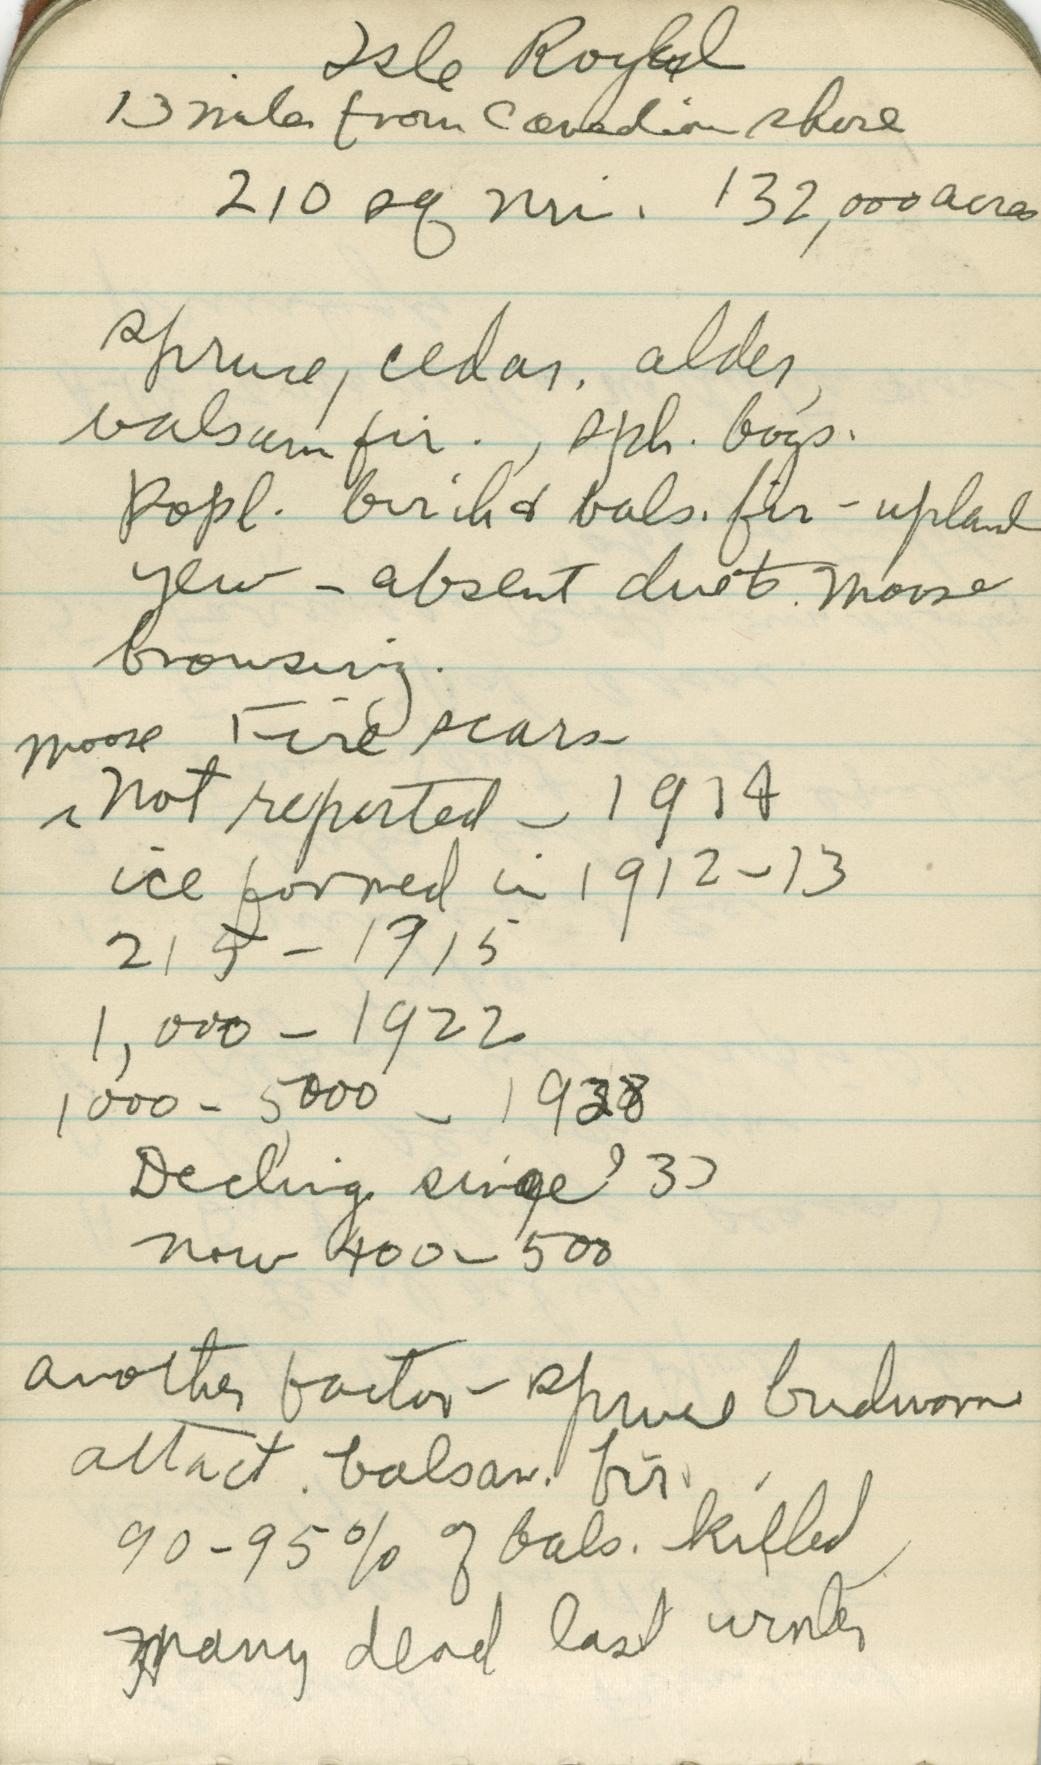 Isle Royal
13 miles from Canadian shore
210 sq mi. 132,000 acres
spruce, cedar, alder,
balsam fir., sph. bogs.
Popl. birch & bals. fir - upland
yew - absent due to moose
browsing.
moose Fire scars
Not reported - 1914
ice formed in 1912-13
215 - 1915
1,000 - 1922
1000 - 5000 - 1928
Decling since '33
now 400 - 500
another factor - spruce budworm
attact. balsam. fir.
90-95% of bals. killed
many dead last winter